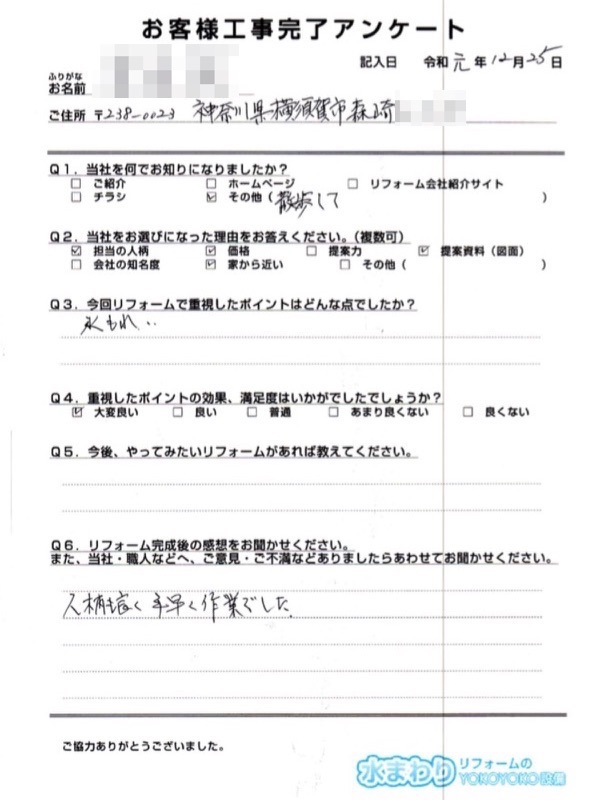 お客様工事完了アンケート
記入日 令和 元 年 12 月 25 日
ふりがな
お名前
ご住所 〒238-0023 神奈川県横須賀市森崎
Q1. 当社を何でお知りになりましたか?
□ ご紹介 □ ホームページ □ リフォーム会社紹介サイト
□ チラシ ☑ その他 ( 散歩して )
Q2. 当社をお選びになった理由をお答えください。(複数可)
☑ 担当の人柄 ☑ 価格 □ 提案力 ☑ 提案資料(図面)
□ 会社の知名度 ☑ 家から近い □ その他 ( )
Q3. 今回リフォームで重視したポイントはどんな点でしたか?
水もれ..
Q4. 重視したポイントの効果、満足度はいかがでしたでしょうか?
☑ 大変良い □ 良い □ 普通 □ あまり良くない □ 良くない
Q5. 今後、やってみたいリフォームがあれば教えてください。
Q6. リフォーム完成後の感想をお聞かせください。
また、当社・職人などへ、ご意見・ご不満などありましたらあわせてお聞かせください。
人柄も良く手早く作業でした.
ご協力ありがとうございました。
水まわり リフォームの
YOKOYOKO設備